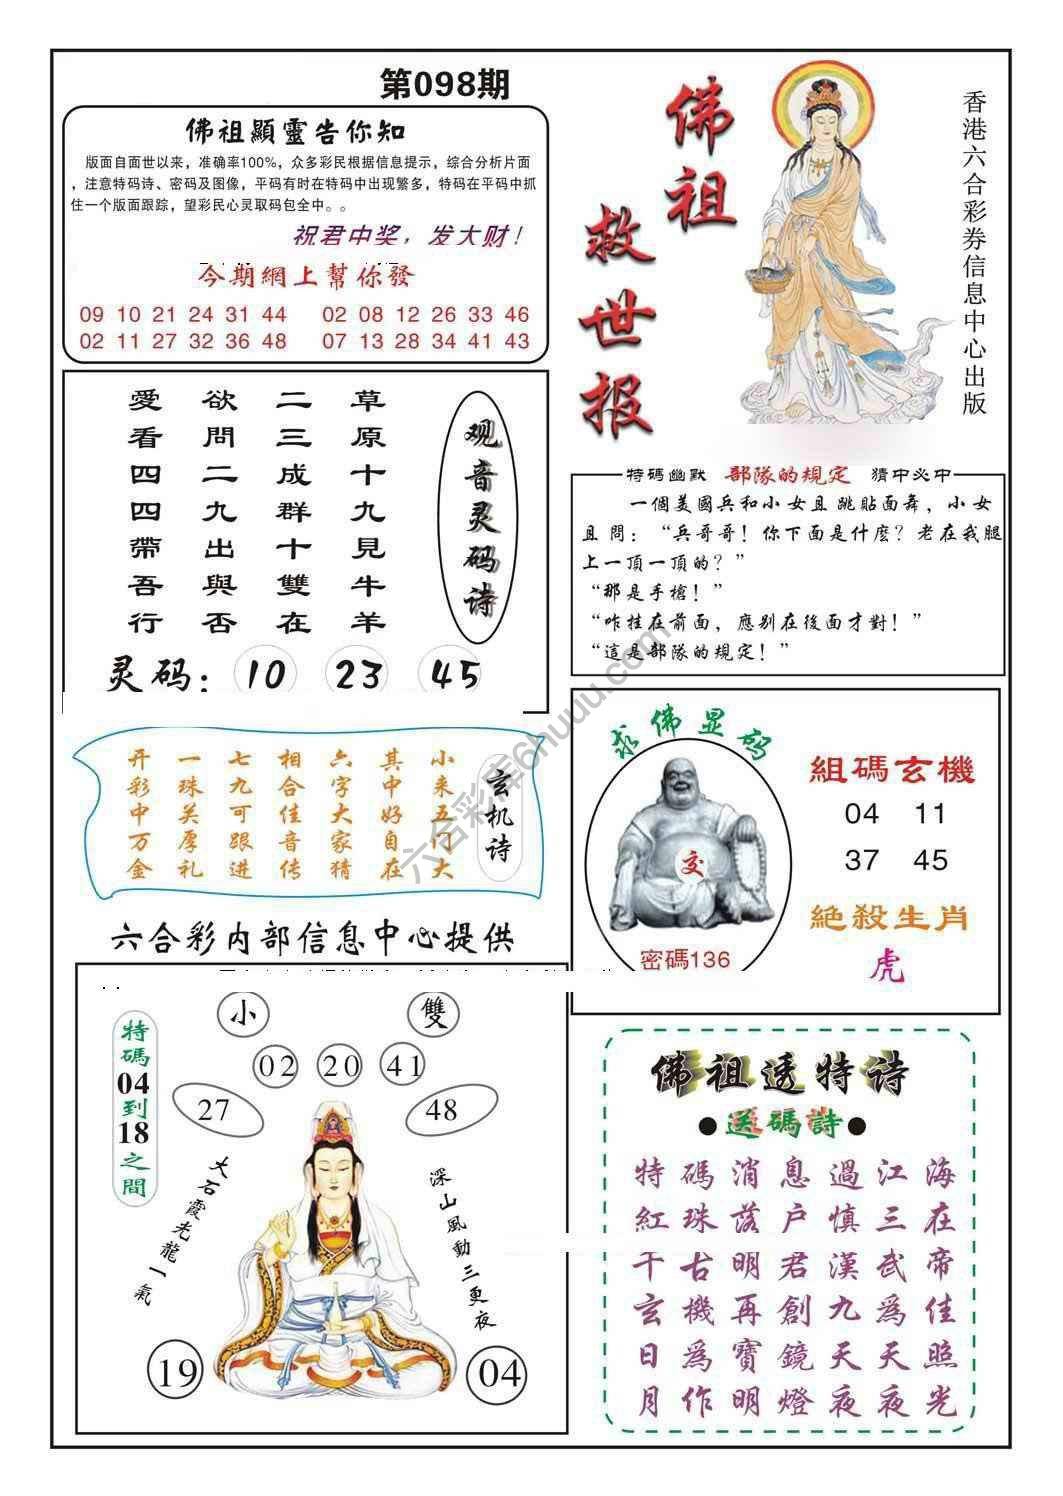 第098期
佛祖顯靈告你知
版面自面世以来，准确率100%，众多彩民根据信息提示，综合分析片面
，注意特码诗、密码及图像，平码有时在特码中出现繁多，特码在平码中抓
住一个版面跟踪，望彩民心灵取码包全中。。
祝君中奖，发大财！
今期網上幫你發
09 10 21 24 31 44 02 08 12 26 33 46
02 11 27 32 36 48 07 13 28 34 41 43
佛祖
救世报
香港六合彩券信息中心出版
观音灵码诗
草原十九見牛羊
二三成群十雙在
欲問二九出與否
愛看四四帶吾行
灵码：10 23 45
特碼幽默 部隊的規定 猜中必中
一個美國兵和小女且跳貼面舞，小女
且問：“兵哥哥！你下面是什麼？老在我腿
上一頂一頂的？”
“那是手槍！”
“咋挂在前面，應别在後面才對！”
“這是部隊的規定！”
玄机诗
开一七相六其小
彩珠九合字中来
中关可佳大好五
万厚跟音家自门
金礼进传猜在大
求佛显码
交
密碼136
組碼玄機
04 11
37 45
絶殺生肖
虎
六合彩内部信息中心提供
小 雙
02 20 41
27 48
特碼04到18之間
大石霞光龍一氣
深山風動三更夜
19 04
佛祖透特诗
●送碼詩●
特碼消息過江海
紅珠落户慎三在
千古明君漢武帝
玄機再創九為佳
日為寶鏡天天照
月作明燈夜夜光
六合彩库6huuu.com